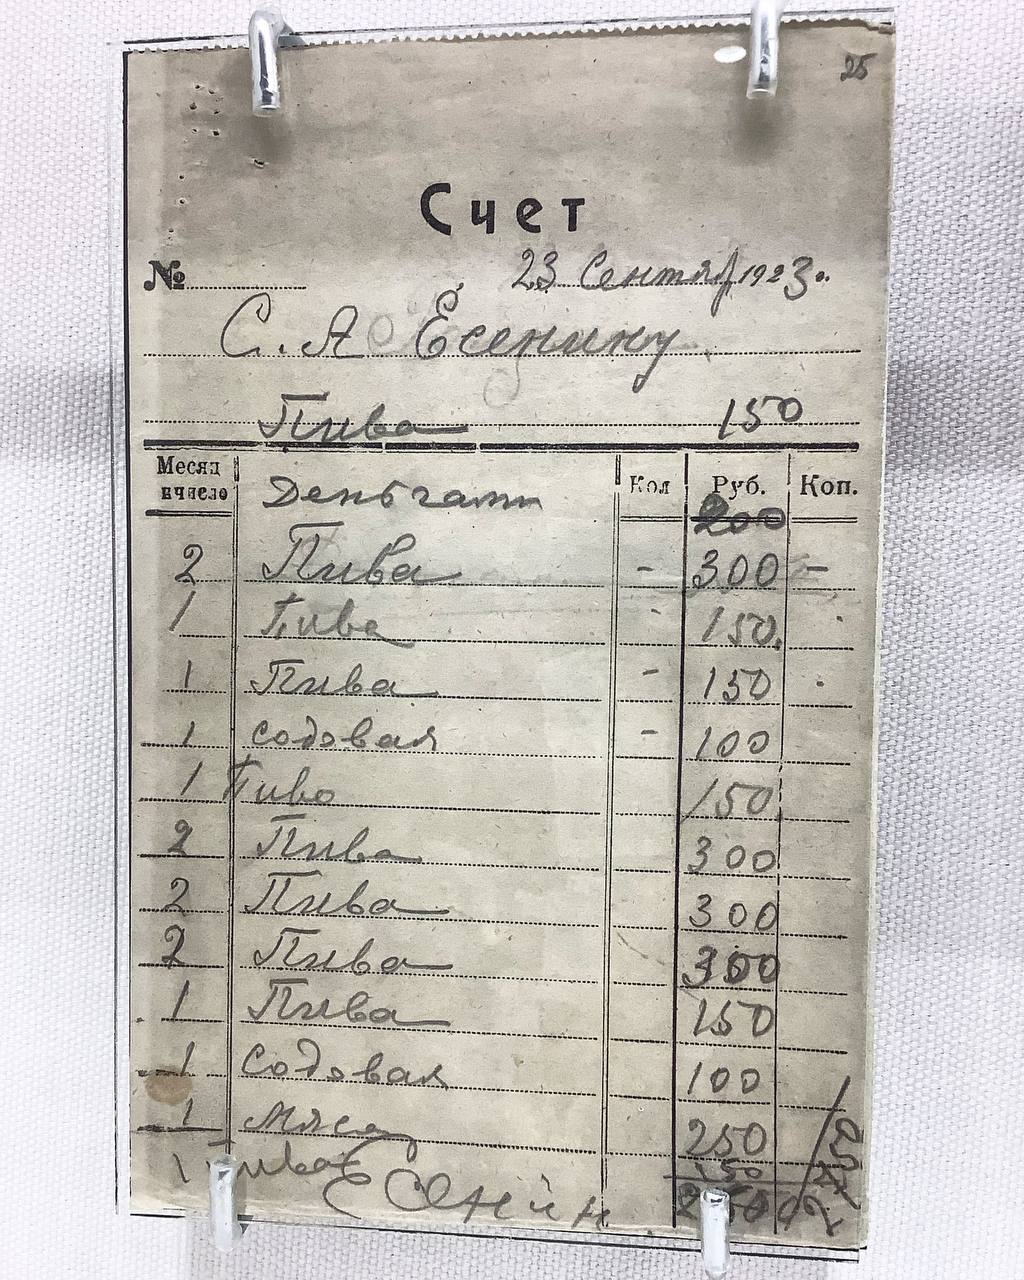 25
Счет
№ 23 Сентяр 1923 г.
С. А Есенину
Пива 150
Месяц и число Кол Руб. Коп.
Деньгами 200
2 Пива - 300 -
1 Пива - 150
1 Пива - 150
1 содовая - 100
1 Пиво 150
2 Пива 300
2 Пива 300
2 Пива 300
1 Пива 150
1 Содовая 100
1 Мясо 250
1 Пива 150
Есенин